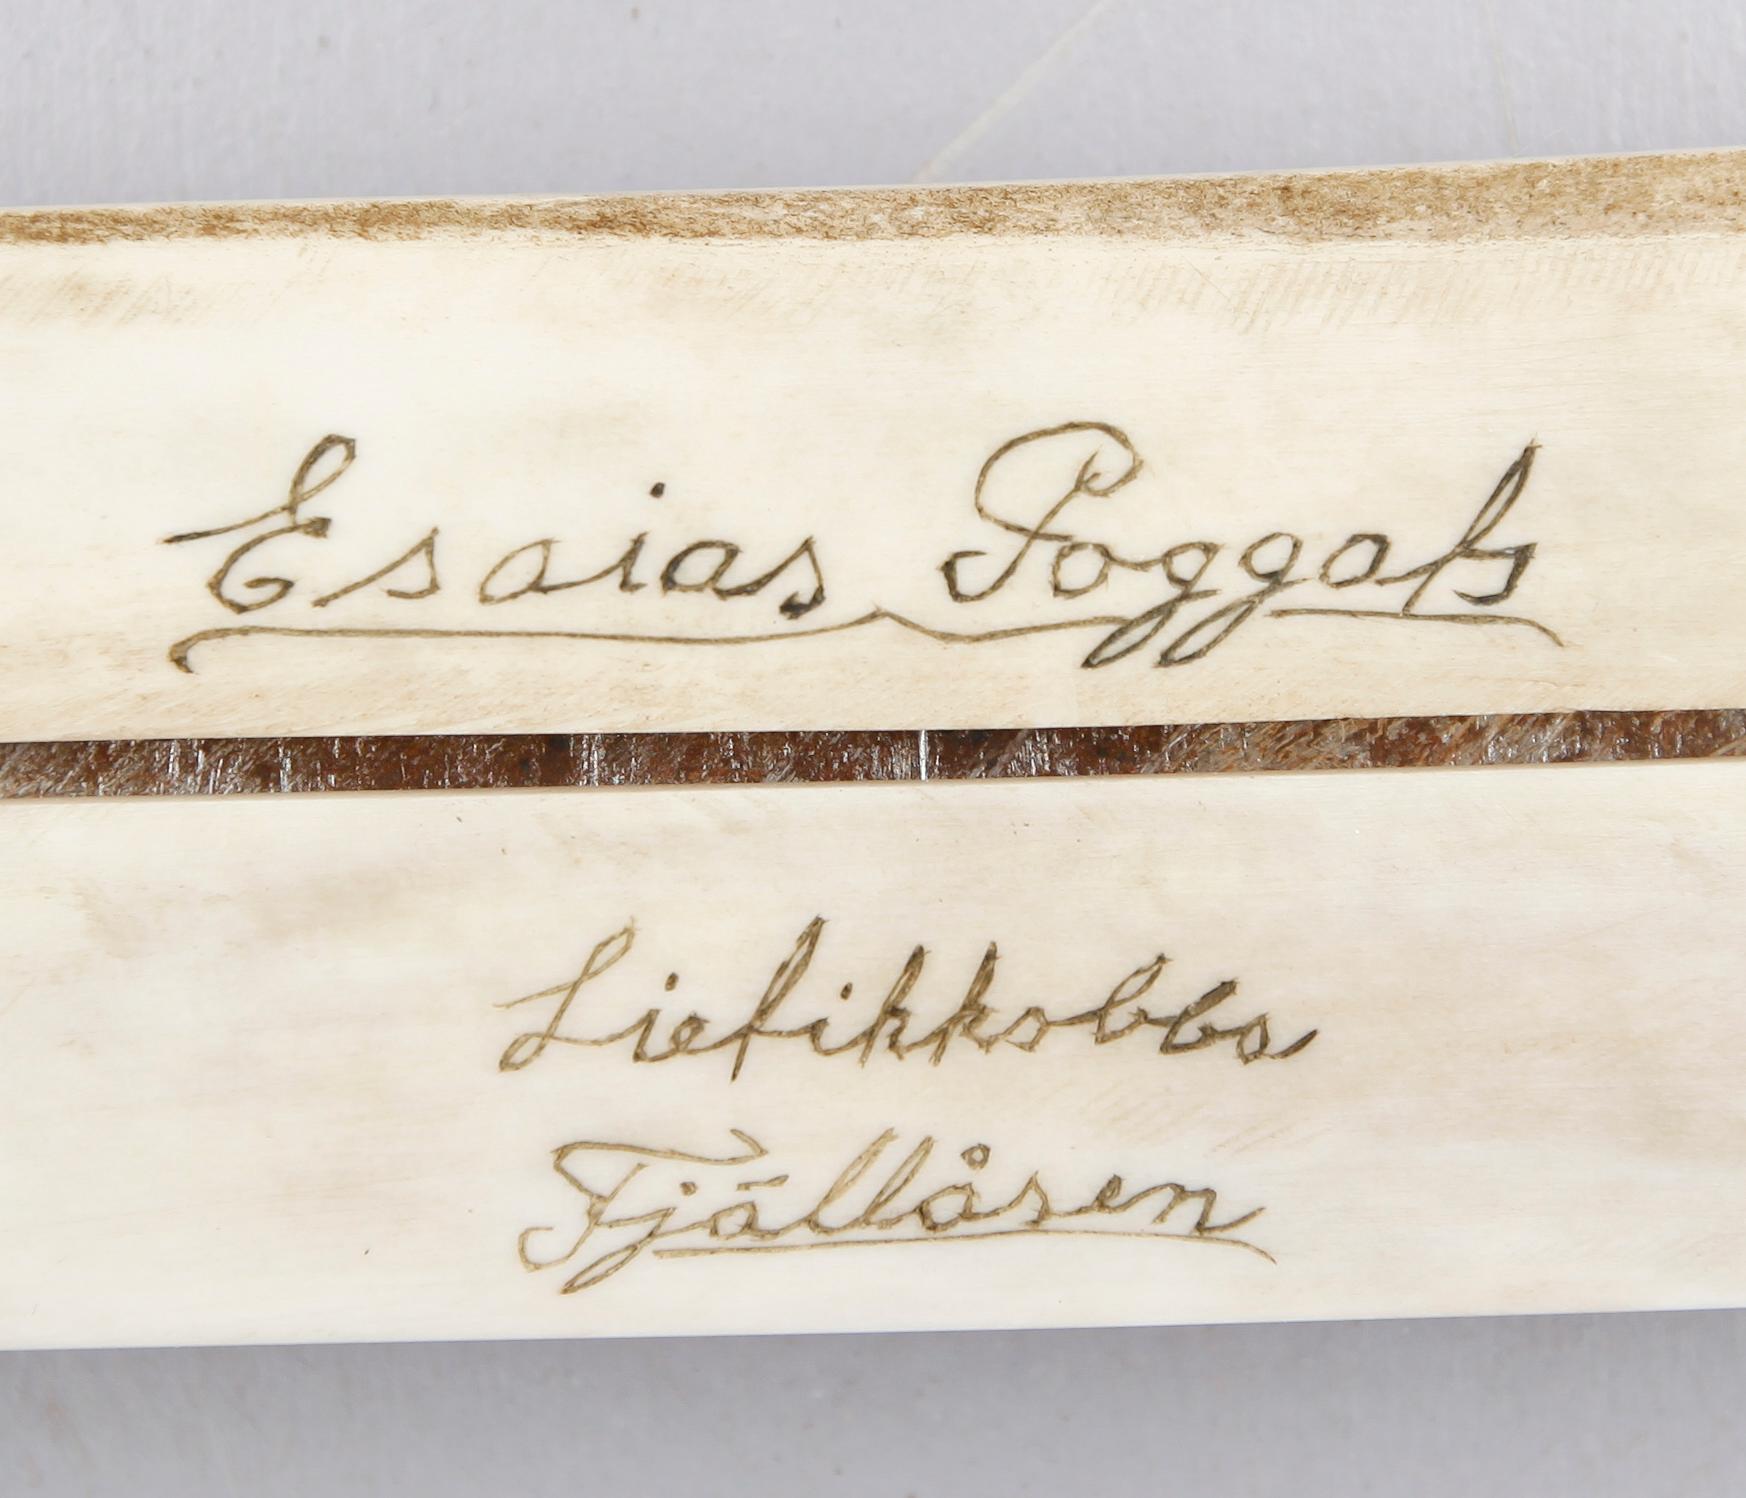 Esaias Poggats
Liefikkobba
Fjällåsen